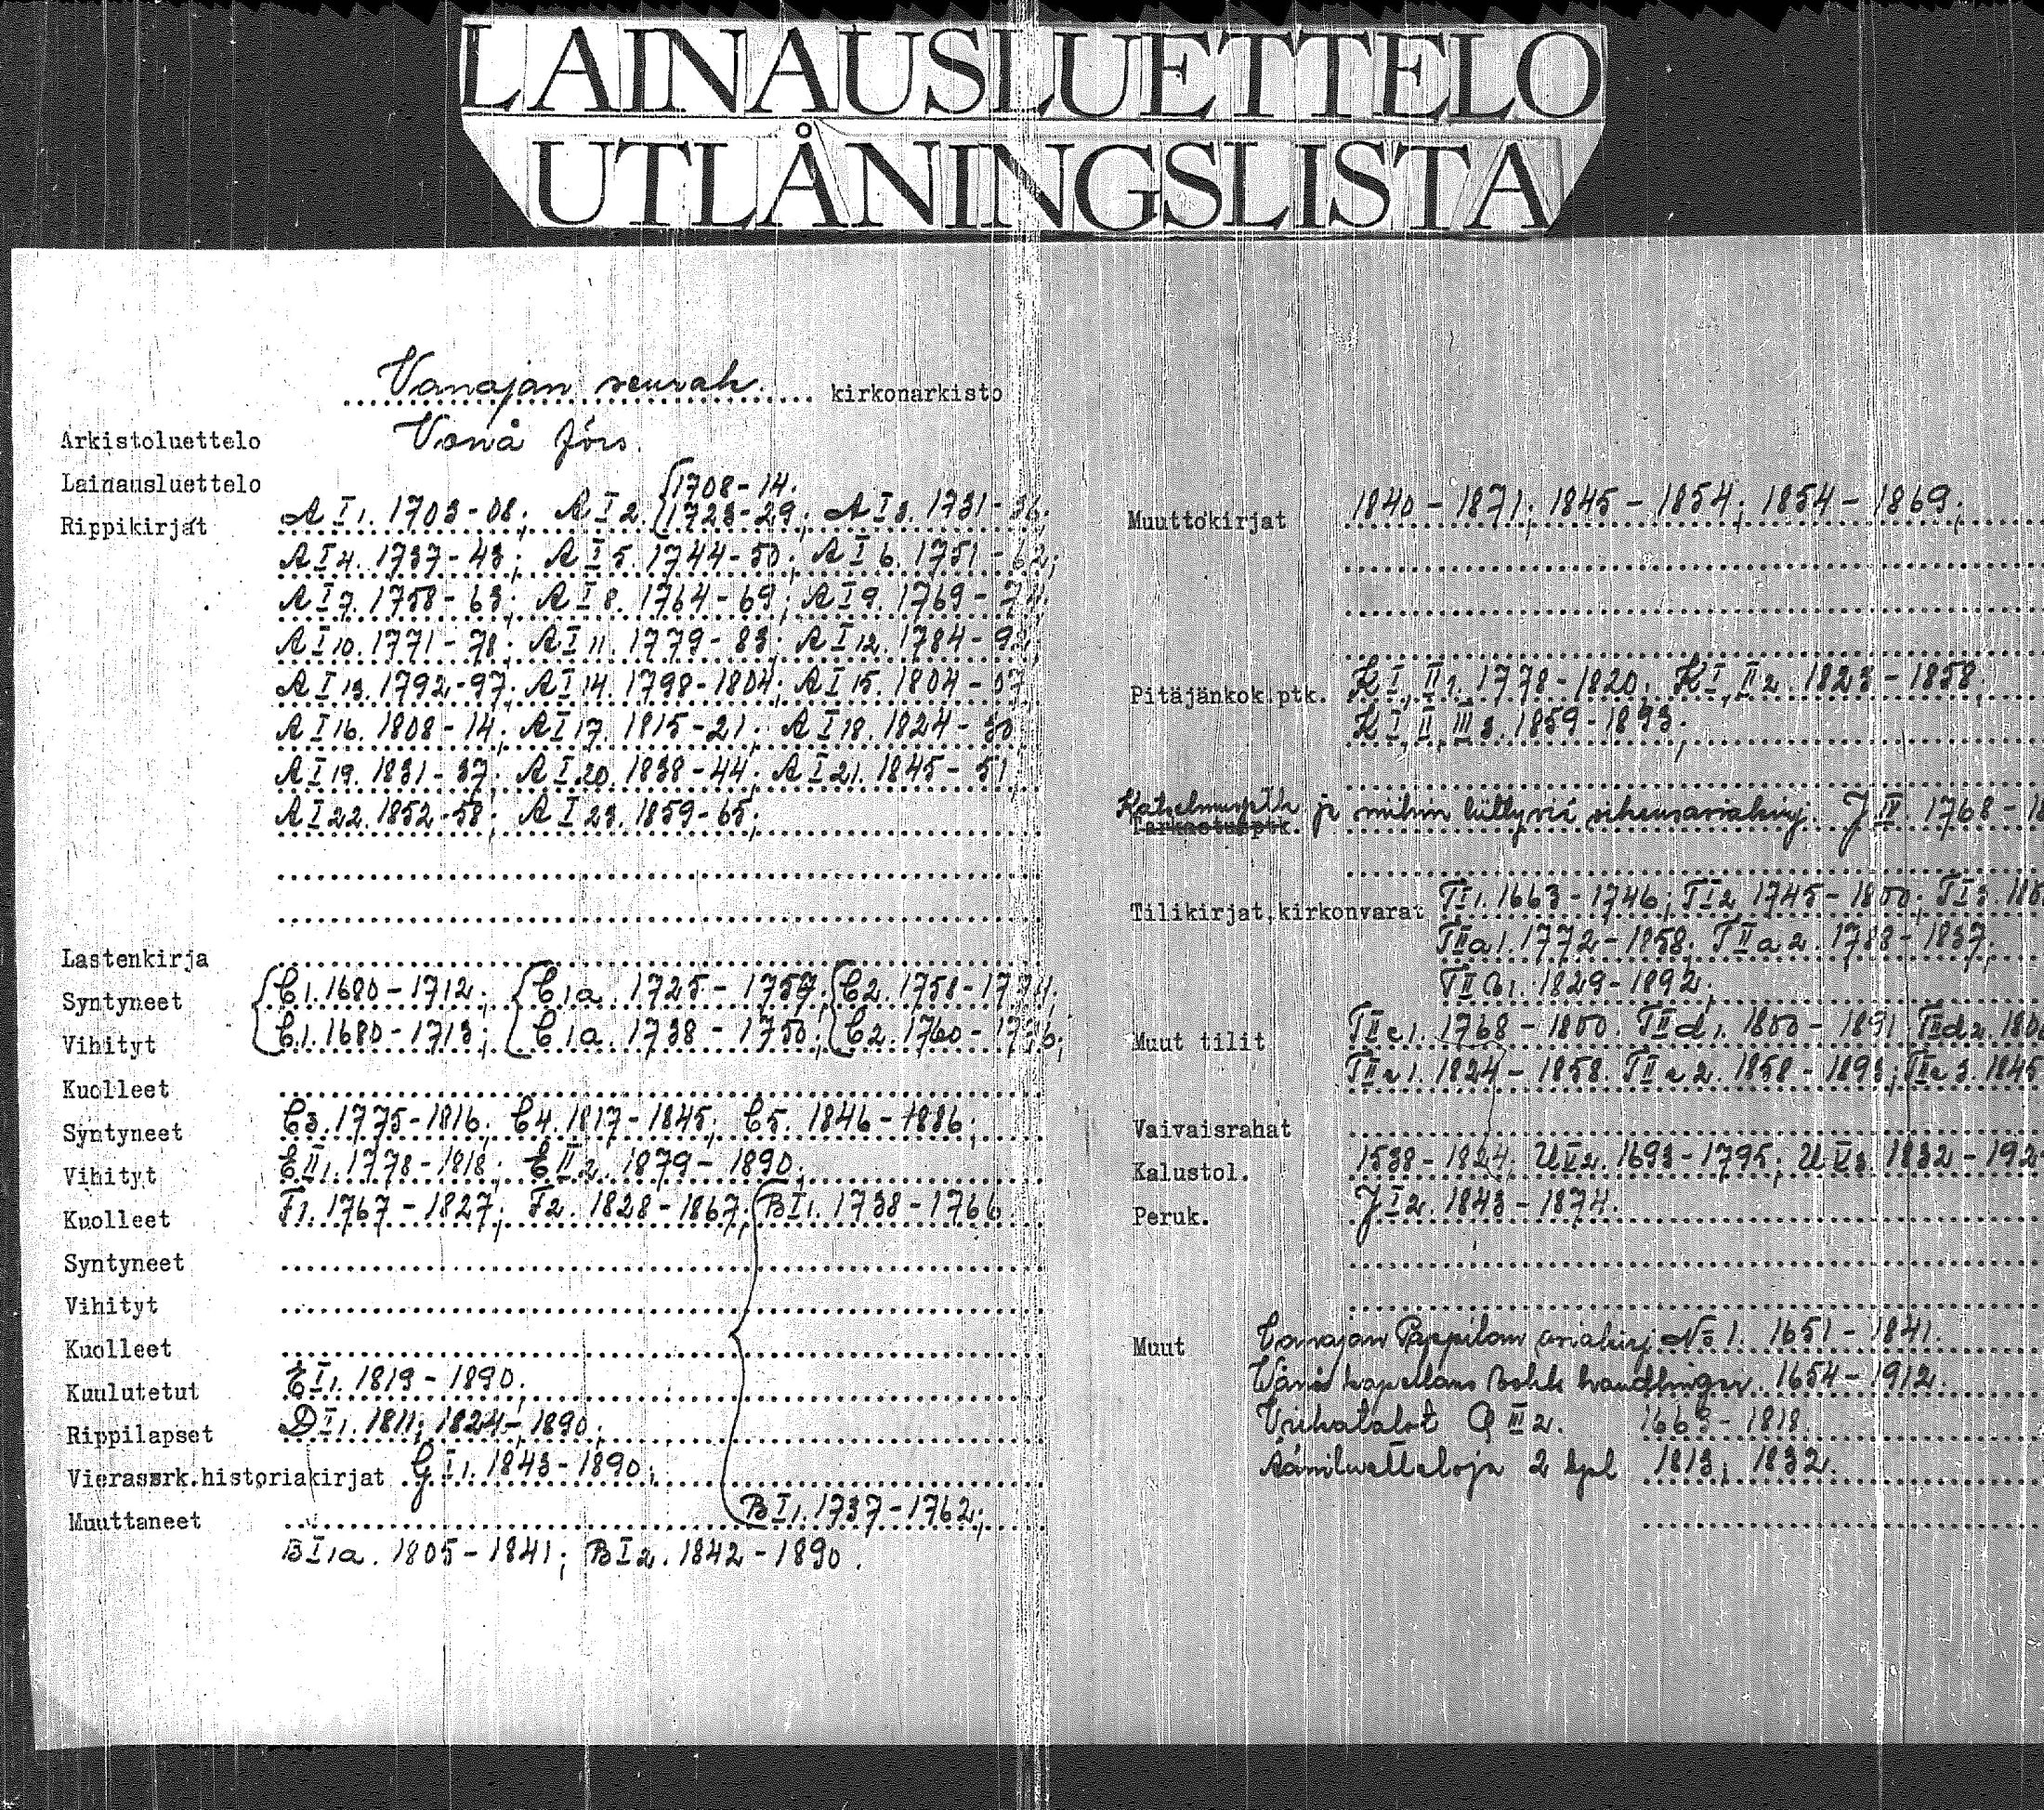 LAINAUSLUETTELO
UTLÅNINGSLISTA
Vanajan seurak. kirkonarkisto
Arkistoluettelo Vanå förs.
Lainausluettelo
Rippikirjat A I 1. 1703-08; A I 2. {1708-14. 1723-29; A I 3. 1731-36;
A I 4. 1737-43; A I 5. 1744-50; A I 6. 1751-62;
A I 7. 1758-63; A I 8. 1764-69; A I 9. 1769-74;
A I 10. 1771-78; A I 11. 1779-83; A I 12. 1784-92;
A I 13. 1792-97; A I 14. 1798-1804; A I 15. 1804-07
A I 16. 1808-14; A I 17. 1815-21; A I 18. 1824-30
A I 19. 1831-37; A I 20. 1838-44; A I 21. 1845-51
A I 22. 1852-58; A I 23. 1859-65;
Lastenkirja
Syntyneet {C1. 1680-1712; {C1a. 1725-1757; {C2. 1758-1774;
Vihityt C1. 1680-1713; C1a. 1738-1750; C2. 1760-1776;
Kuolleet
Syntyneet C3. 1775-1816; C4. 1817-1845; C5. 1846-1886;
Vihityt E II 1. 1778-1818; E II 2. 1879-1890;
Kuolleet F1. 1767-1827; F2. 1828-1867; {B I 1. 1738-1766
Syntyneet
Vihityt
Kuolleet
Kuulutetut E I 1. 1819-1890;
Rippilapset D I 1. 1811; 1824-1890;
Vierassrk.historiakirjat G I 1. 1843-1890;
Muuttaneet B I 1. 1737-1762;
B I 1a. 1805-1841; B I 2. 1842-1890.
Muuttokirjat 1840-1871; 1845-1854; 1854-1869;
Pitäjänkok.ptk. K I, II 1. 1778-1820; K I, II 2. 1823-1858;
K I, II, III 3. 1859-1893;
Katselmusptk
Tarkastusptk. ja niihin liittyviä J IV. 1768-
Tilikirjat,kirkonvarat T I 1. 1663-1746; T I 2 1745-1800; T I 3.
T II a 1. 1772-1858; T II a 2. 1788-1837;
1829-1892;
Muut tilit T II c 1. 1768-1800. T II d 1. 1800-1891 T II d 2.
T II e 1. 1824-1858. T II e 2. 1858-1893; T II e 3. 1845
Vaivaisrahat
Kalustol. 1538-1824; U V 2. 1693-1795; U V 3. 1832-192
Peruk. J I 2. 1843-1874.
Muut Vanajan Pappilan asiakirj. No 1. 1651-1841.
Wånå kapellans handlingar. 1654-1912.
Q III 2. 1663-1818.
Ääniluetteloja 2 kpl 1813; 1832.